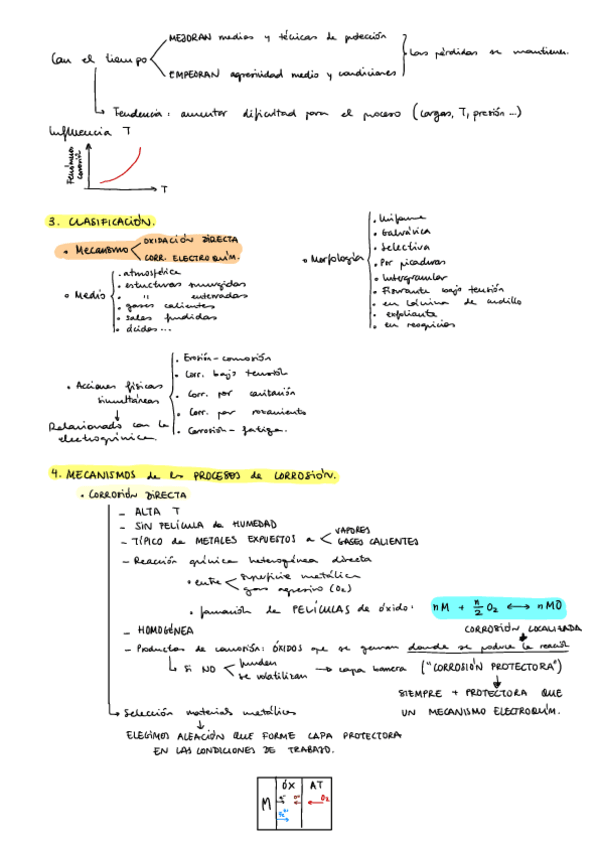 MEJORAN medios y técnicas de protección
Con el tiempo
Las pérdidas se mantienen.
EMPEORAN agresividad medio y condiciones
Tendencia: aumentar dificultad para el proceso (cargas, T, presión...)
Influencia T
Fenómenos corrosión
T
3. CLASIFICACIÓN.
• MECANISMO
OXIDACIÓN DIRECTA
CORR. ELECTROQUÍM.
• Medio
• atmosférica
• estructuras sumergidas
• " enterradas
• gases calientes
• sales fundidas
• ácidos...
• Morfología
• Uniforme
• Galvánica
• Selectiva
• Por picaduras
• Intergranular
• Fisurante bajo tensión
• en lámina de cuchillo
• exfoliante
• en resquicios
• Acciones físicas simultáneas
• Erosión-corrosión
• Corr. bajo tensión
• Corr. por cavitación
• Corr. por rozamiento
• Corrosión-fatiga.
Relacionado con la electroquímica.
4. MECANISMOS de los PROCESOS de CORROSIÓN.
• CORROSIÓN DIRECTA
- ALTA T
- SIN PELÍCULA de HUMEDAD
- TÍPICO de METALES EXPUESTOS a
VAPORES
GASES CALIENTES
- Reacción química heterogénea directa
• entre
superficie metálica
gas agresivo (O₂)
• formación de PELÍCULAS de óxido:
nM + n/2 O₂ ⟷ nMO
- HOMOGÉNEA
CORROSIÓN LOCALIZADA
- Productos de corrosión: ÓXIDOS que se generan donde se produce la reacc
Si NO
funden
se volatilizan
→ capa barrera ("CORROSIÓN PROTECTORA")
SIEMPRE + PROTECTORA QUE
UN MECANISMO ELECTROQUÍM.
Selección materiales metálicos
ELEGIMOS ALEACIÓN QUE FORME CAPA PROTECTORA
EN LAS CONDICIONES DE TRABAJO.
ÓX AT
M
O₂